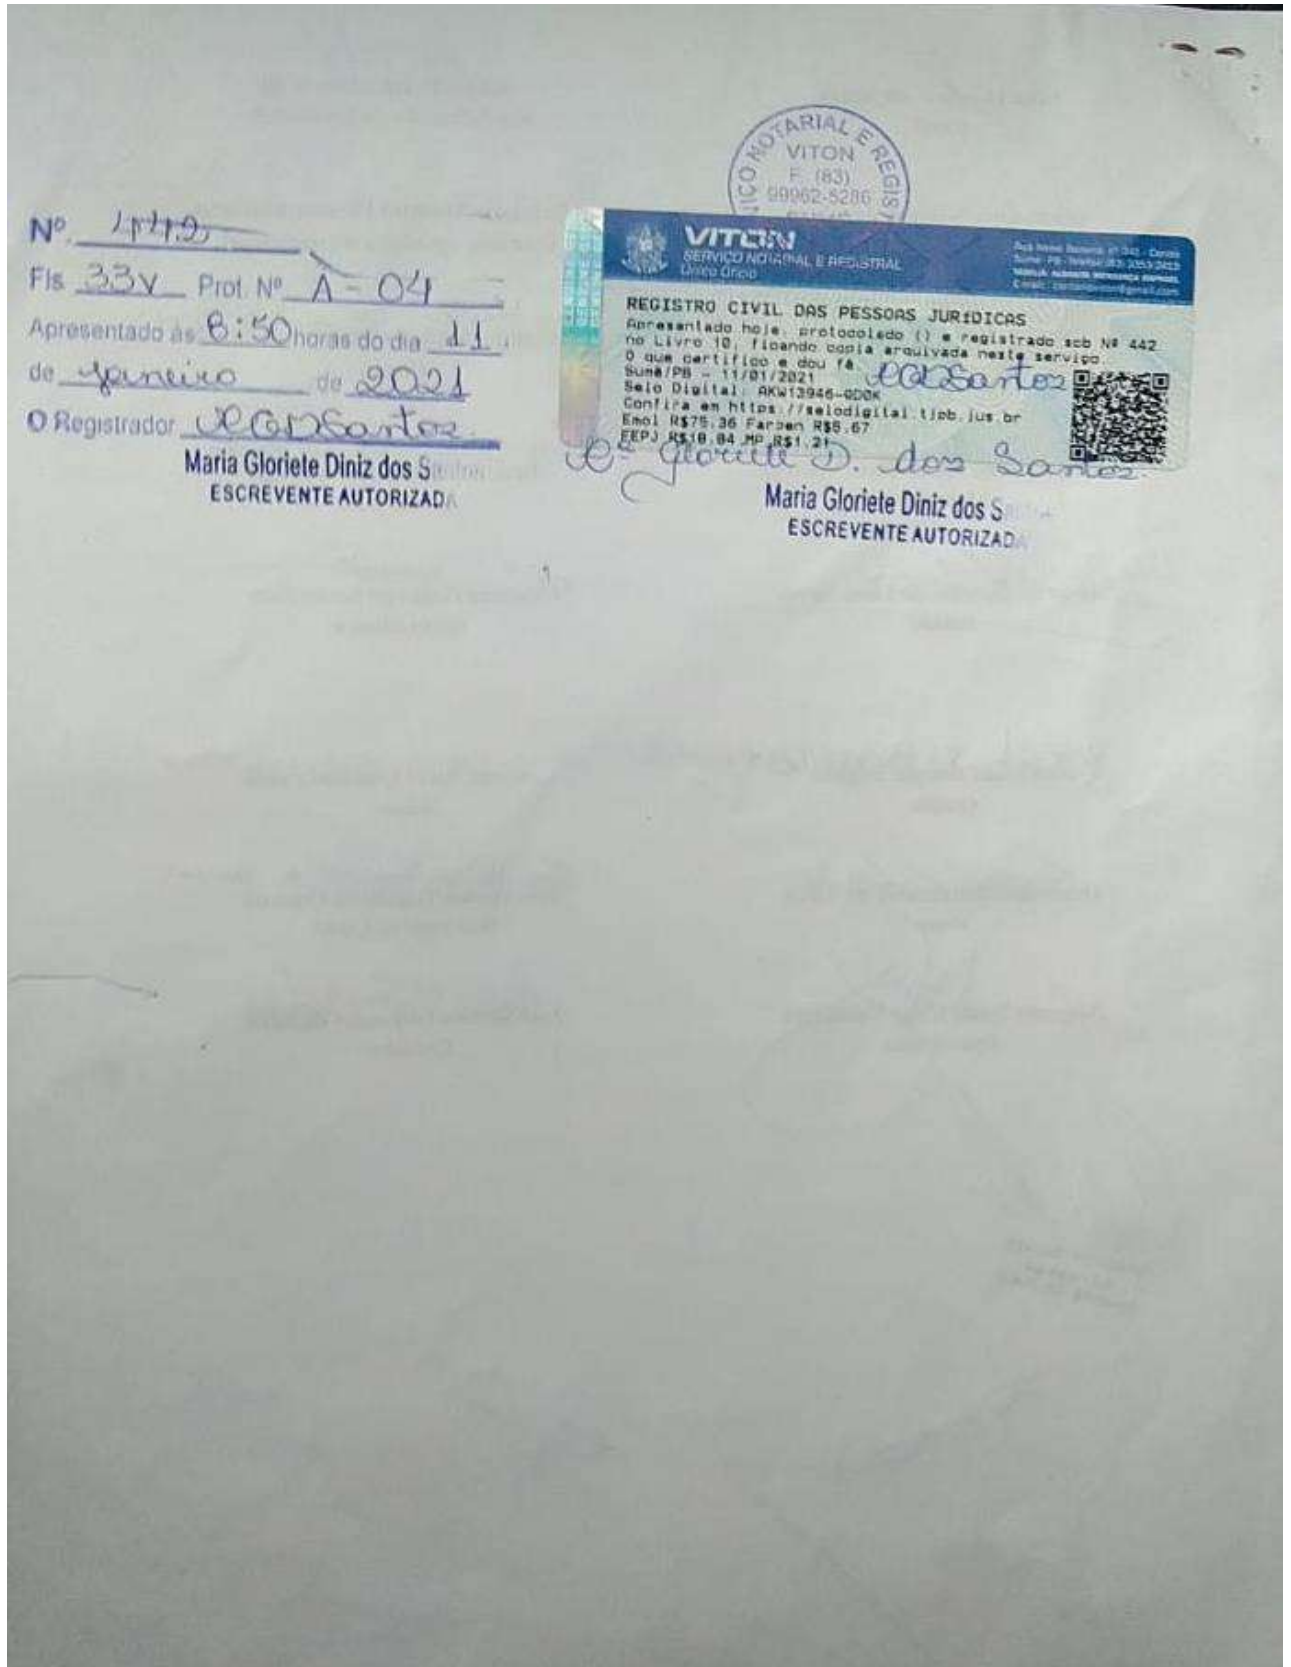 NICO NOTARIAL E REGIS
VITON
F. (83)
99962-5286
Nº 442
Fls 33v Prot. Nº A-04
Apresentado às 8:50 horas do dia 11
de Janeiro de 2021
O Registrador MGDSantos
Maria Gloriete Diniz dos Santos
ESCREVENTE AUTORIZADA
VITON
SERVIÇO NOTARIAL E REGISTRAL
Único Ofício
REGISTRO CIVIL DAS PESSOAS JURÍDICAS
Apresentado hoje, protocolado () e registrado sob Nº 442
no Livro 10, ficando copia arquivada neste serviço.
O que certifico e dou fá.
Sumé/PB - 11/01/2021 MGDSantos
Selo Digital: AKW13946-QD0K
Confira em https://selodigital.tjpb.jus.br
Emol R$75.36 Farpen R$5.67
FEPJ R$18.84 MP R$1.21
Mª Gloriete D. dos Santos
Maria Gloriete Diniz dos Santos
ESCREVENTE AUTORIZADA